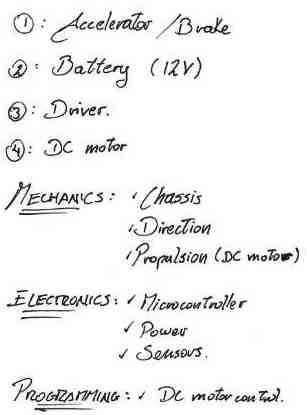 ①: Accelerator / Brake
②: Battery (12V)
③: Driver.
④: DC motor
MECHANICS: ✓ Chassis
✓ Direction
✓ Propulsion (DC motor)
ELECTRONICS: ✓ Microcontroller
✓ Power
✓ Sensors.
PROGRAMMING: ✓ DC motor control.